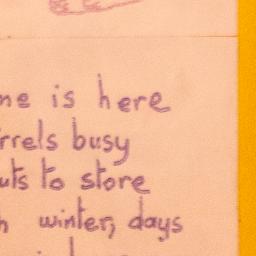 ne is here
rrels busy
uts to store
h winter, days